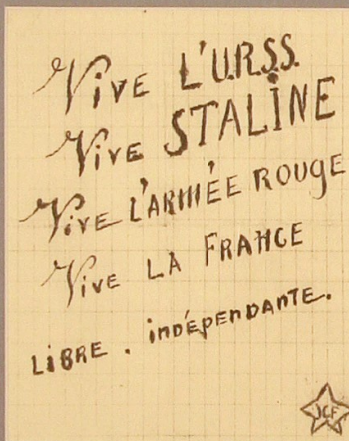 Vive L'U.R.S.S.
Vive STALINE
Vive L'ARMÉE ROUGE
Vive LA FRANCE
LIBRE. indépendante.
JCF